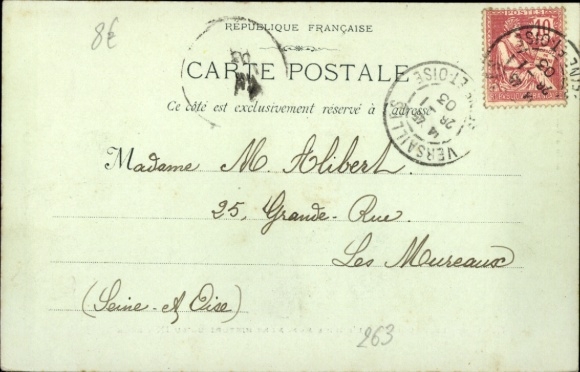 8€
RÉPUBLIQUE FRANÇAISE
POSTES
10
CARTE POSTALE
Ce côté est exclusivement réservé à l'adresse
VERSAILLES
SEINE-ET-OISE
14
26 -1
03
Madame M. Alibert.
25, Grande-Rue.
Les Mureaux
(Seine-&-Oise)
263